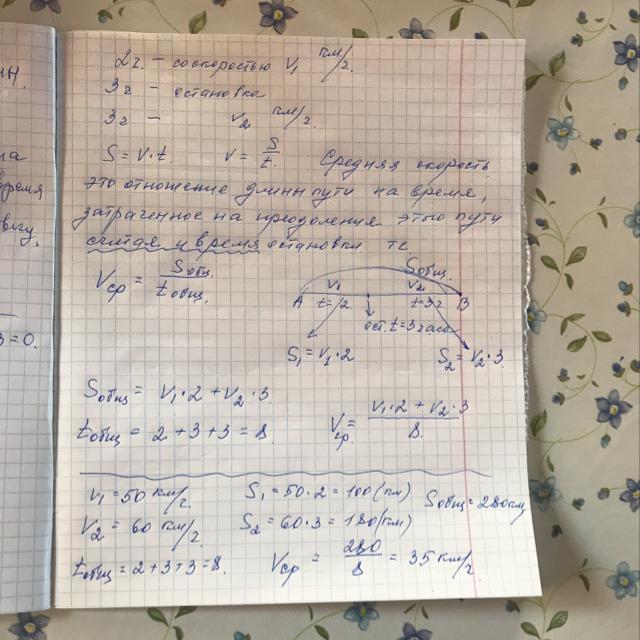 ин.
на
время
вету,
3=0.
2ч - со скоростью v₁ км/ч.
3ч - остановка
3ч - v₂ км/ч.
S = v·t. v = S/t. Средняя скорость
это отношение длины пути на время,
затраченное на преодоления этого пути
считая и время остановки те
Vср = Sобщ./tобщ.
Sобщ.
v₁ v₂
A t=2 t=3ч B
ост. t=3 часа
S₁ = v₁·2 S₂ = v₂·3.
Sобщ = v₁·2 + v₂·3.
tобщ = 2+3+3 = 8. Vср = (v₁·2 + v₂·3)/8.
v₁ = 50 км/ч. S₁ = 50·2 = 100 (км) Sобщ = 280км
v₂ = 60 км/ч. S₂ = 60·3 = 180 (км)
tобщ = 2+3+3=8. Vср = 280/8 = 35 км/ч